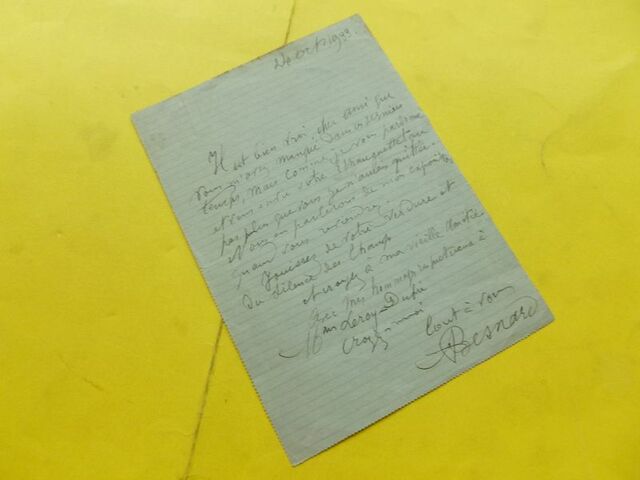 20 oct 1933.
Il est bien vrai, cher ami que
vous m'avez manqué dernier
temps, mais comme je vous pardonne
et vous votre
pas plus que vous je n'aurais quitter
Nous en parlerons de mon
quand vous reviendrez.
Jouissez de votre verdure et
du silence des champs
et croyez à ma vieille amitié
Avec mes hommages respectueux à
Mme Leroy-Dupré
croyez moi
tout à vous
ABesnard